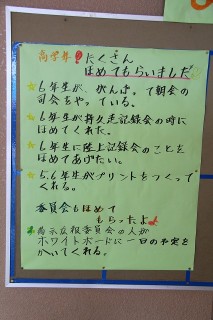 高学年 たくさん
ほめてもらいました!!
☆6年生が、がんばって朝会の
司会をやっている。
☆6年生が持久走記録会の時に
ほめてくれた。
☆6年生に陸上記録会のことを
ほめてあげたい。
☆5.6年生がプリントをつくって
くれる。
委員会もほめて
もらったよ
掲示広報委員会の人が
ホワイトボードに一日の予定を
かいてくれる。